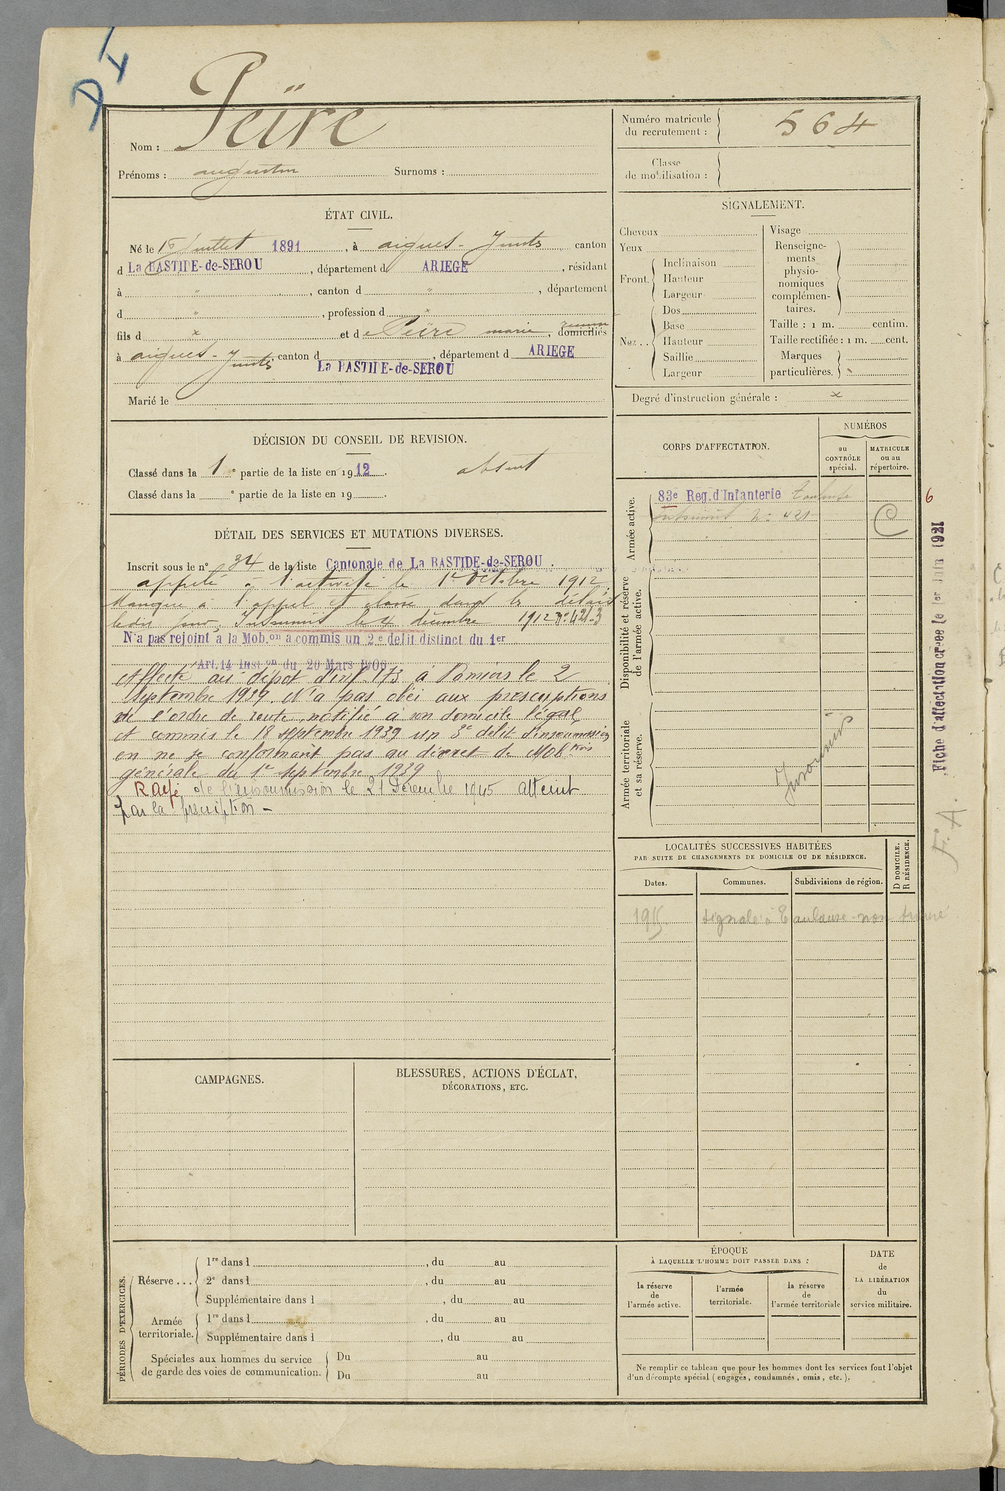 Peïre
Nom :
Prénoms : augustin Surnoms :
Numéro matricule
du recrutement : 564
Classe
de mobilisation :
ÉTAT CIVIL.
Né le 15 Juillet 1891, à aigues-Juntes canton
d La BASTIDE-de-SEROU, département d ARIEGE, résidant
à " , canton d " , département
d " , profession d "
fils d x et de Peïre marie, domiciliés
à aigues-Juntes, canton d La BASTIDE-de-SEROU, département d ARIEGE
Marié le
SIGNALEMENT.
Cheveux
Yeux
Front. Inclinaison
Hauteur
Largeur
Nez.. Dos
Base
Hauteur
Saillie
Largeur
Visage
Renseigne-
ments
physio-
nomiques
complémen-
taires.
Taille : 1 m. centim.
Taille rectifiée : 1 m. cent.
Marques
particulières.
Degré d'instruction générale : x
DÉCISION DU CONSEIL DE REVISION.
Classé dans la 1e partie de la liste en 1912. absent
Classé dans la e partie de la liste en 19 .
DÉTAIL DES SERVICES ET MUTATIONS DIVERSES.
Inscrit sous le n° 34 de la liste Cantonale de La BASTIDE-de-SEROU.
appelé à l'activité le 1er Octobre 1912.
Manque à l'appel
Insoumis le 4 décembre 1912 N° 421-3
N'a pas rejoint à la Mob.on a commis un 2e délit distinct du 1er
Art. 14 Inst.on du 20 Mars 1906
Affecté au dépot d'inf. 173 à Pamiers le 2
Septembre 1939. N'a pas obéi aux prescriptions
de l'ordre de route notifié à son domicile légal,
et commis le 18 septembre 1939 un 3e délit d'insoumission
en ne se conformant pas au décret de Mob.tion
générale du 1er septembre 1939
Rayé de l'insoumission le 21 Décembre 1945 atteint
par la prescription -
CORPS D'AFFECTATION.
NUMÉROS
au
CONTRÔLE
spécial.
MATRICULE
ou au
répertoire.
Armée active.
83e Reg. d'Infanterie Toulouse
insoumis N° 421
C
6
Disponibilité et réserve
de l'armée active.
Armée territoriale
et sa réserve.
Insoumis
Fiche d'affectation créée le 1er Juin 1921
F. A.
LOCALITÉS SUCCESSIVES HABITÉES
PAR SUITE DE CHANGEMENTS DE DOMICILE OU DE RÉSIDENCE.
Dates. Communes. Subdivisions de région. D DOMICILE. R RÉSIDENCE.
1915 signalé à Toulouse - non trouvé
CAMPAGNES.
BLESSURES, ACTIONS D'ÉCLAT,
DÉCORATIONS, ETC.
PÉRIODES D'EXERCICES.
Réserve... 1re dans l , du au
2e dans l , du au
Supplémentaire dans l , du au
Armée
territoriale. 1re dans l , du au
Supplémentaire dans l , du au
Spéciales aux hommes du service
de garde des voies de communication. Du au
Du au
ÉPOQUE
À LAQUELLE L'HOMME DOIT PASSER DANS :
la réserve
de
l'armée active.
l'armée
territoriale.
la réserve
de
l'armée territoriale
DATE
de
LA LIBÉRATION
du
service militaire.
Ne remplir ce tableau que pour les hommes dont les services font l'objet
d'un décompte spécial (engagés, condamnés, omis, etc.).